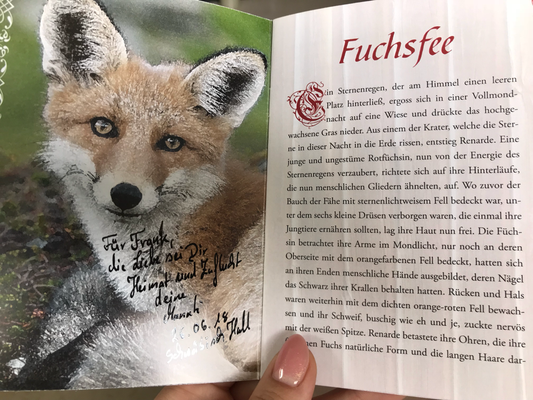 Für Frank,
die Liebe sei Dir
Heimat und Zuflucht
deine
06.19
Hall
Fuchsfee
Ein Sternenregen, der am Himmel einen leeren
Platz hinterließ, ergoss sich in einer Vollmond-
nacht auf eine Wiese und drückte das hochge-
wachsene Gras nieder. Aus einem der Krater, welche die Ster-
ne in dieser Nacht in die Erde rissen, entstieg Renarde. Eine
junge und ungestüme Rotfüchsin, nun von der Energie des
Sternenregens verzaubert, richtete sich auf ihre Hinterläufe,
die nun menschlichen Gliedern ähnelten, auf. Wo zuvor der
Bauch der Fähe mit sternenlichtweisem Fell bedeckt war, un-
ter dem sechs kleine Drüsen verborgen waren, die einmal ihre
Jungtiere ernähren sollten, lag ihre Haut nun frei. Die Füch-
sin betrachtet ihre Arme im Mondlicht, nur noch an deren
Oberseite mit dem orangefarbenen Fell bedeckt, hatten sich
an ihren Enden menschliche Hände ausgebildet, deren Nägel
das Schwarz ihrer Krallen behalten hatten. Rücken und Hals
waren weiterhin mit dem dichten orange-roten Fell bewach-
sen und ihr Schweif, buschig wie eh und je, zuckte nervös
mit der weißen Spitze. Renarde betastete ihre Ohren, die ihre
Fuchs natürliche Form und die langen Haare dar-